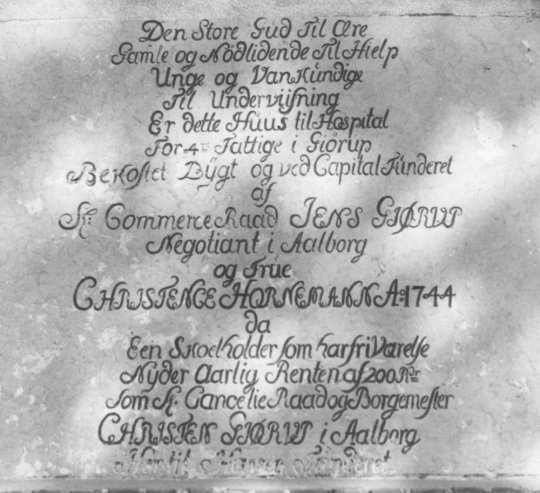 Den Store Gud Til Ære
Gamle og Nödlidende Til Hielp
Unge og VanKündige
Til Underviisning
Er dette Huus til Hospital
For 4re Fattige i Giörup
BeKostet Bÿgt og ved Capital Fünderet
af
Sr Commerce Raad JENS GIØRUP
Negotiant i Aalborg
og Frue
CHRISTENCE HORNEMANN Ao 1744
da
Een Skoelholder som har fri Værelse
Nyder Aarlig Renten af 200 Rdr
som Sr Cancelie Raad og Borgemester
CHRISTEN GIØRUP i Aalborg
Hertil Haver Fünderet